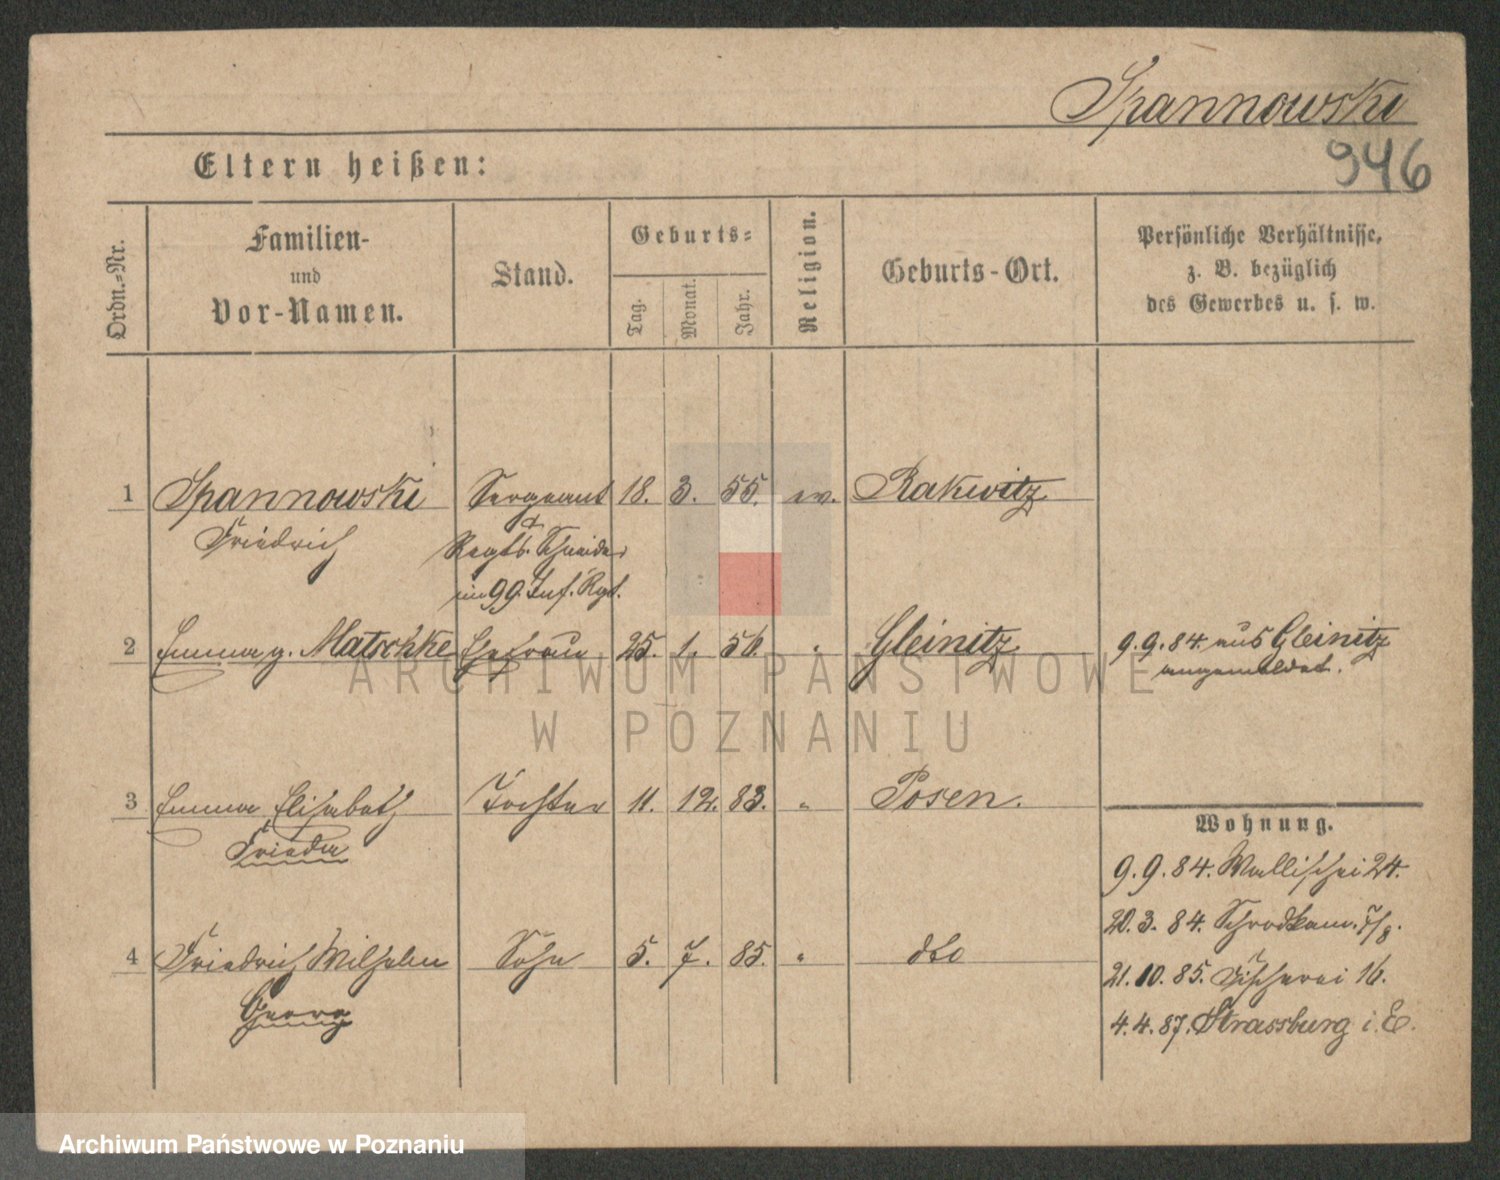 Spannowski
946
Eltern heißen:
Ordn.-Nr.
Familien-
und
Vor-Namen.
Stand.
Geburts-
Tag.
Monat.
Jahr.
Religion.
Geburts-Ort.
Persönliche Verhältnisse,
z. B. bezüglich
des Gewerbes u. s. w.
1 Spannowski Sergeant 18. 3. 55. ev. Rakwitz
Friedrich & Regts. Schneider
im 99. Inf. Rgt.
2 Emma g. Matschke Ehefrau 25. 1. 56. " Gleinitz 9.9.84. aus Gleinitz
angemeldet.
ARCHIWUM PAŃSTWOWE
W POZNANIU
3 Emma Elisabeth Tochter 11. 12. 83. " Posen.
Frieda
Wohnung.
9.9.84. Wallischei 24.
20.3.84. Schrodkam. 7/8.
4 Friedrich Wilhelm Sohn 5. 7. 85. " dto
Georg
21.10.85. Fischerei 16.
4.4.87. Strassburg i. E.
Archiwum Państwowe w Poznaniu